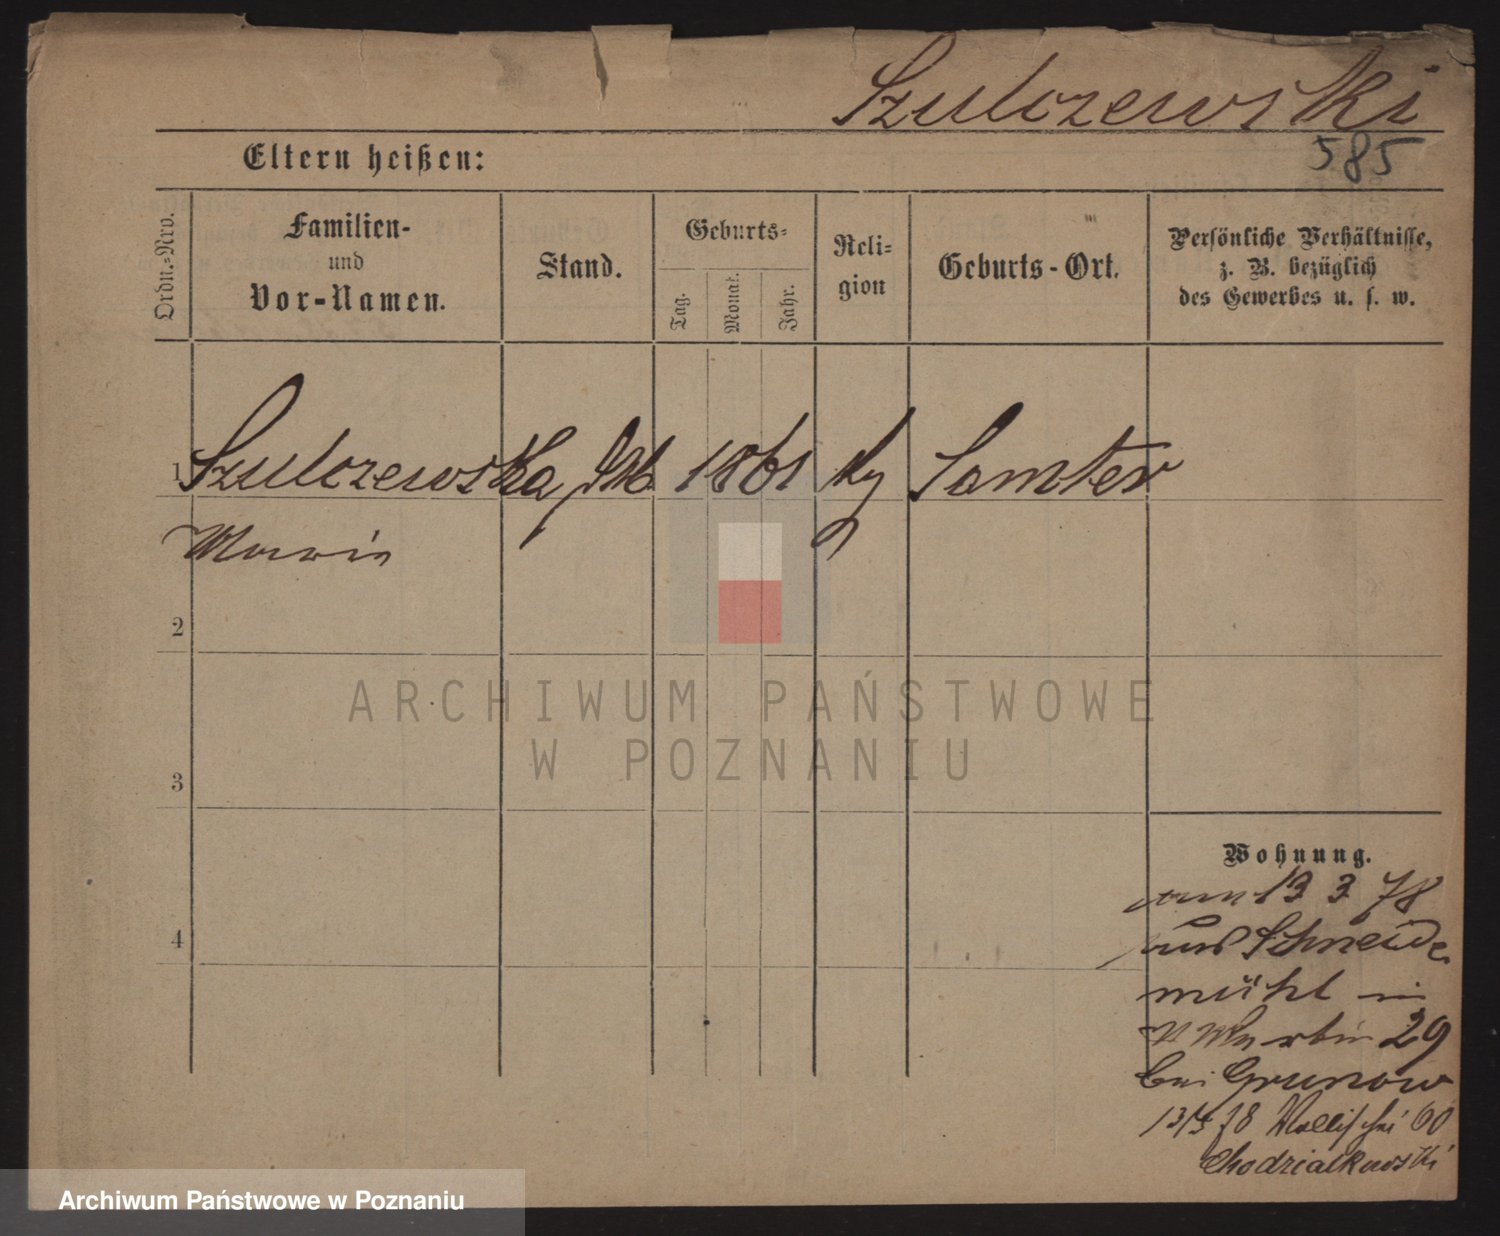 Szulczewski
585
Eltern heißen:
Ordn.-Nro.
Familien-
und
Vor-Namen.
Stand.
Geburts-
Tag.
Monat.
Jahr.
Reli-
gion
Geburts-Ort.
Persönliche Verhältnisse,
z. B. bezüglich
des Gewerbes u. s. w.
1 Szulczewska 1861 Samter
Marie
2
3
4
Wohnung.
am 13 3 78
aus Schneide
mühl in
Martin 29
bei Grunow
13/4 78 Wallischei 60
Chodziakowski
ARCHIWUM PAŃSTWOWE
W POZNANIU
Archiwum Państwowe w Poznaniu